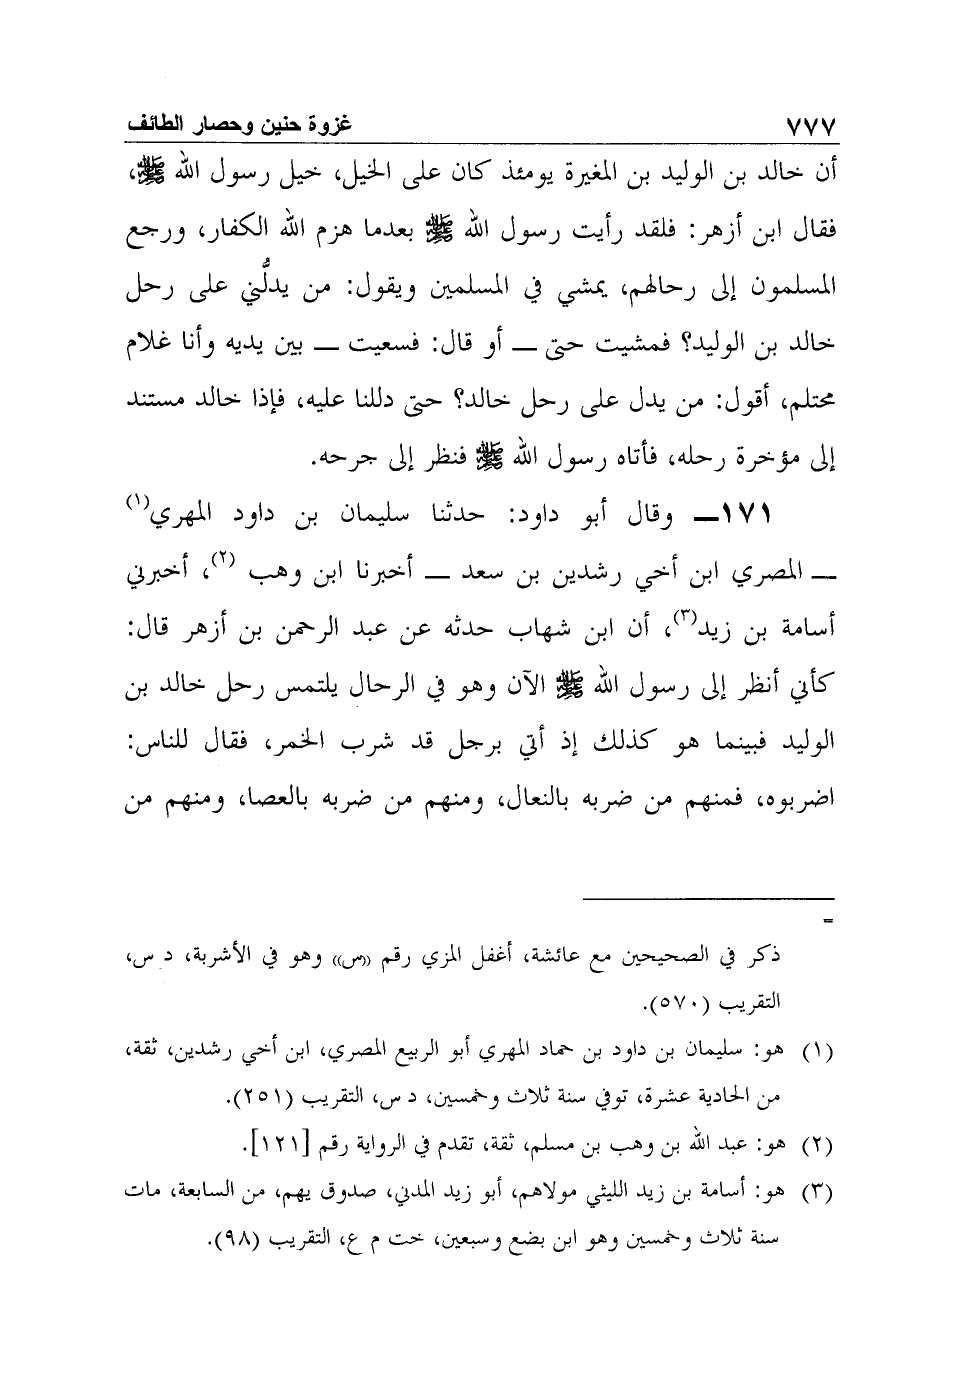 ٧٧٧ غزوة حنين وحصار الطائف
أن خالد بن الوليد بن المغيرة يومئذ كان على الخيل، خيل رسول الله ﷺ،
فقال ابن أزهر: فلقد رأيت رسول الله ﷺ بعدما هزم الله الكفار، ورجع
المسلمون إلى رحالهم، يمشي في المسلمين ويقول: من يدلُّني على رحل
خالد بن الوليد؟ فمشيت حتى ــ أو قال: فسعيت ــ بين يديه وأنا غلام
محتلم، أقول: من يدل على رحل خالد؟ حتى دللنا عليه، فإذا خالد مستند
إلى مؤخرة رحله، فأتاه رسول الله ﷺ فنظر إلى جرحه.
١٧١ــ وقال أبو داود: حدثنا سليمان بن داود المهري(١)
ــ المصري ابن أخي رشدين بن سعد ــ أخبرنا ابن وهب (٢)، أخبرني
أسامة بن زيد(٣)، أن ابن شهاب حدثه عن عبد الرحمن بن أزهر قال:
كأني أنظر إلى رسول الله ﷺ الآن وهو في الرحال يلتمس رحل خالد بن
الوليد فبينما هو كذلك إذ أتي برجل قد شرب الخمر، فقال للناس:
اضربوه، فمنهم من ضربه بالنعال، ومنهم من ضربه بالعصا، ومنهم من
=
ذكر في الصحيحين مع عائشة، أغفل المزي رقم «س» وهو في الأشربة، د س،
التقريب (٥٧٠).
(١) هو: سليمان بن داود بن حماد المهري أبو الربيع المصري، ابن أخي رشدين، ثقة،
من الحادية عشرة، توفي سنة ثلاث وخمسين، د س، التقريب (٢٥١).
(٢) هو: عبد الله بن وهب بن مسلم، ثقة، تقدم في الرواية رقم [١٢١].
(٣) هو: أسامة بن زيد الليثي مولاهم، أبو زيد المدني، صدوق يهم، من السابعة، مات
سنة ثلاث وخمسين وهو ابن بضع وسبعين، خت م ع، التقريب (٩٨).